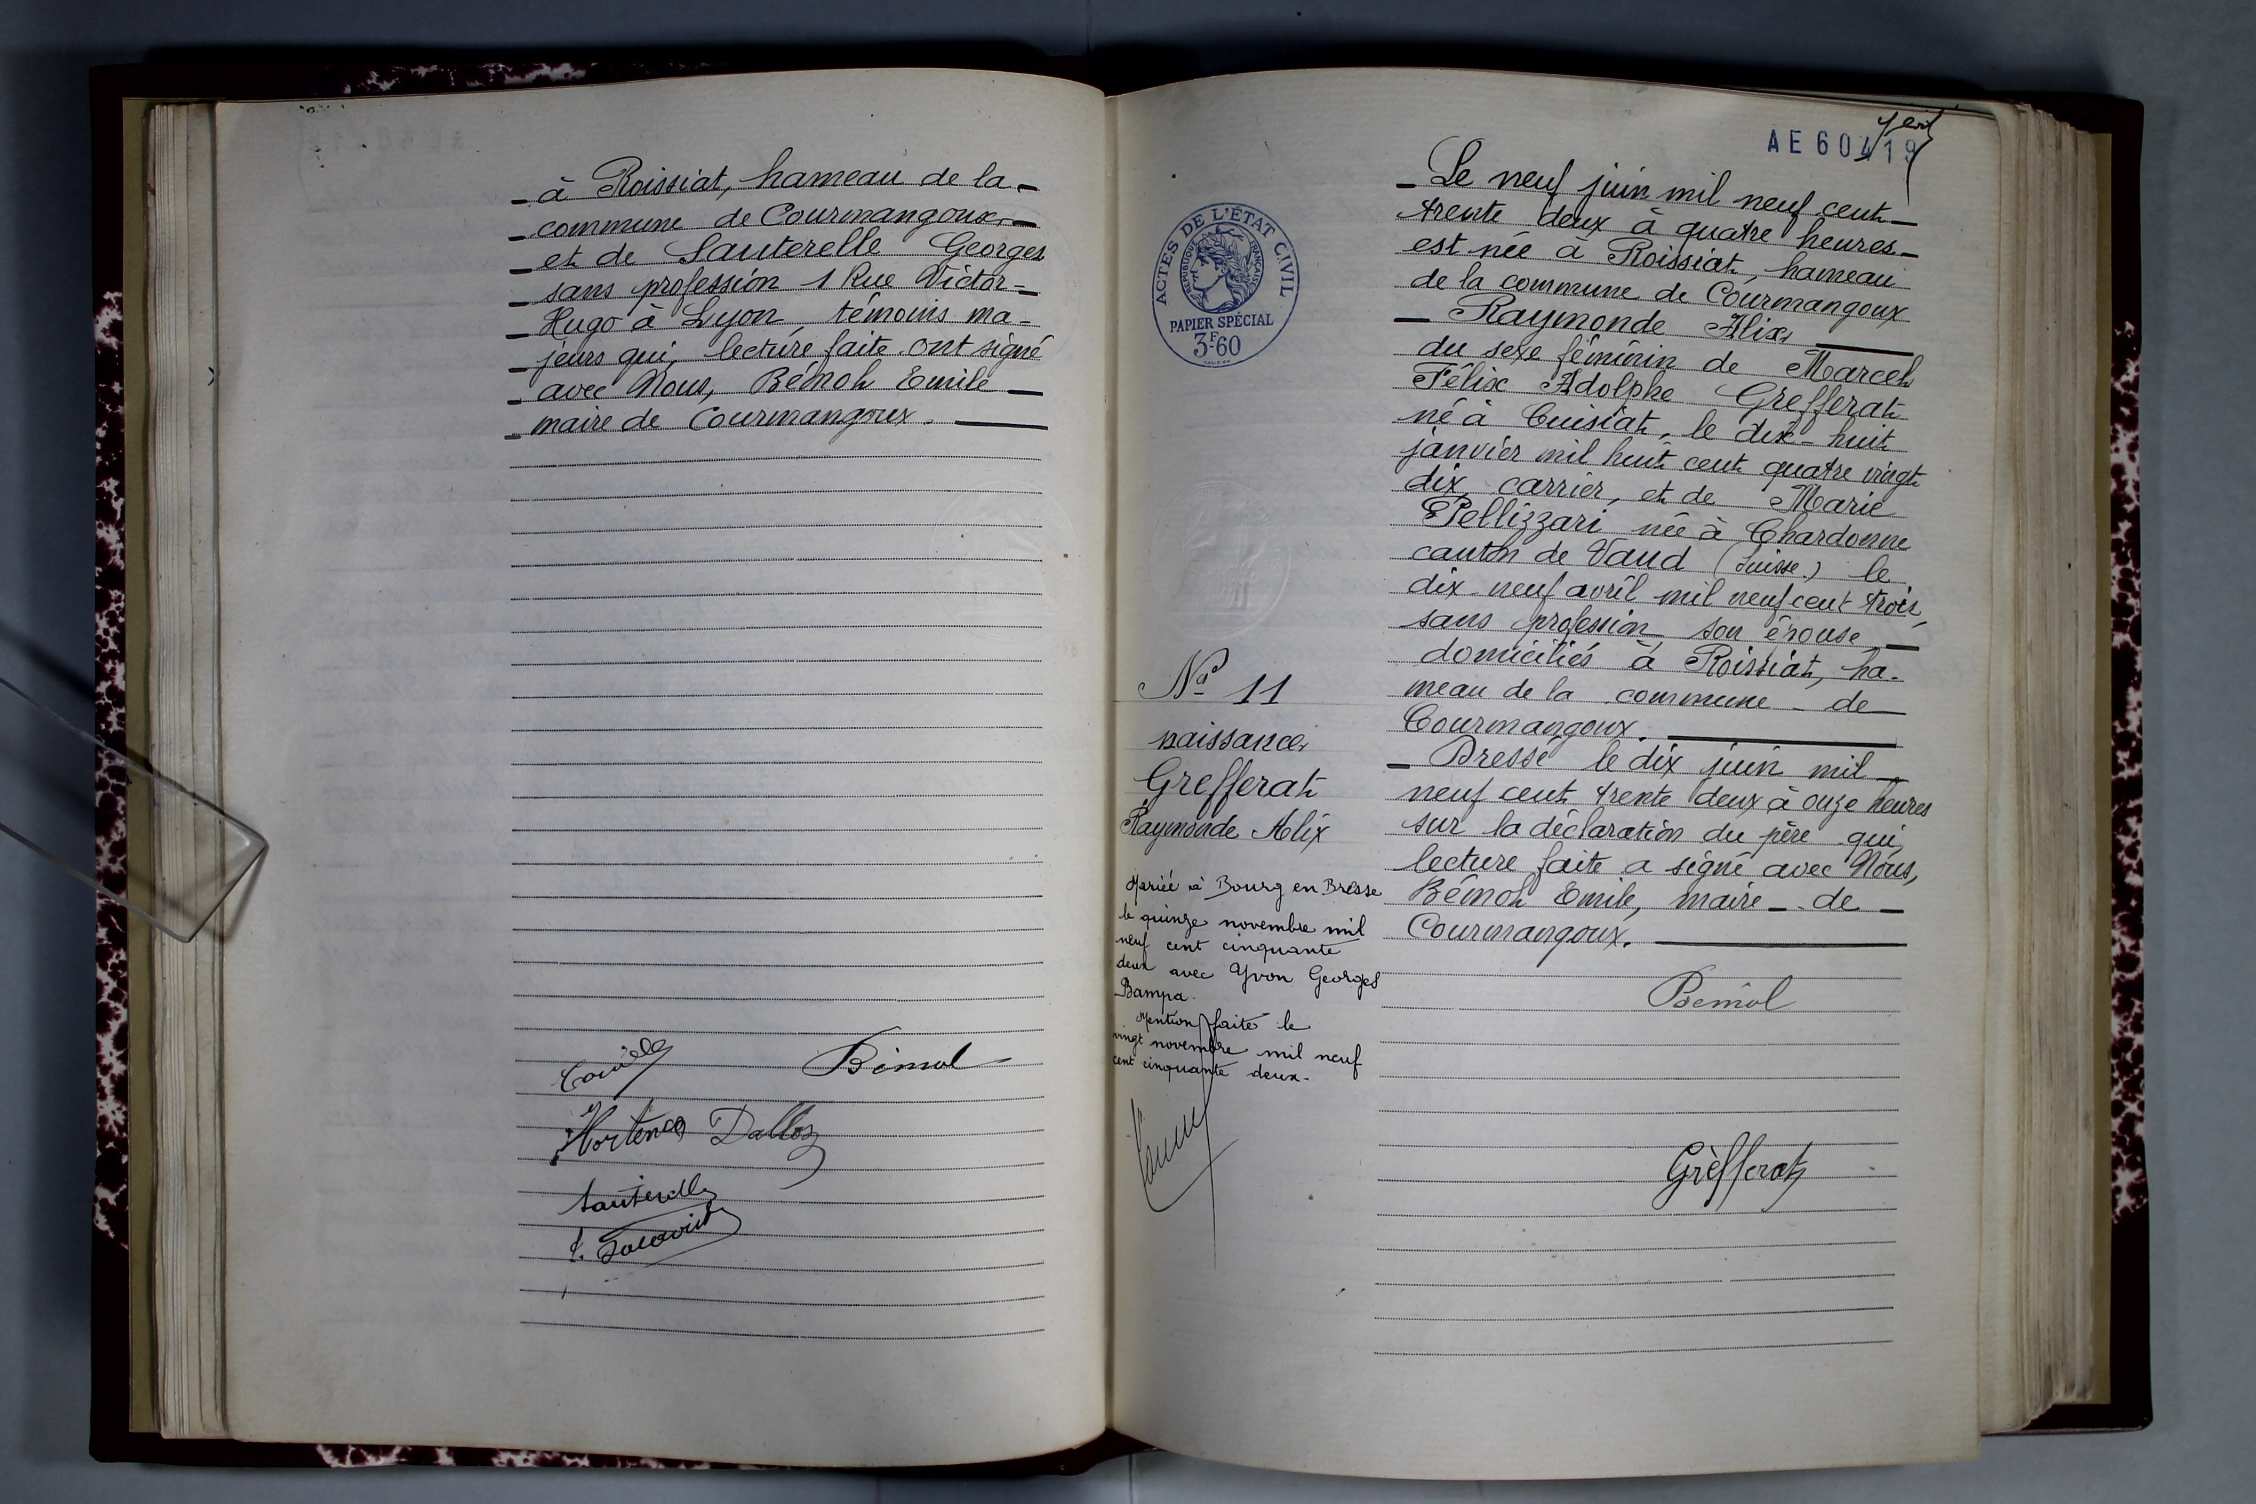 à Roissiat, hameau de la
commune de Courmangoux,
et de Sauterelle Georges
sans profession 1 Rue Victor-
Hugo à Lyon témoins ma-
jeurs qui, lecture faite ont signé
avec Nous, Bémol Emile
maire de Courmangoux.
Bémol
Hortence Dalloz
Sauterelle
AE60419
ACTES DE L'ÉTAT CIVIL
RÉPUBLIQUE FRANÇAISE
PAPIER SPÉCIAL
3F.60
Nº 11
naissance
Grefferat
Raymonde Alix
Mariée à Bourg en Bresse
le quinze novembre mil
neuf cent cinquante
deux avec Yvon Georges
Bampa.
Mention faite le
vingt novembre mil neuf
cent cinquante deux.
Le neuf juin mil neuf cent
trente deux à quatre heures
est née à Roissiat, hameau
de la commune de Courmangoux
Raymonde Alix
du sexe féminin de Marcel
Félix Adolphe Grefferat
né à Cuisiat, le dix-huit
janvier mil huit cent quatre vingt
dix, carrier, et de Marie
Pellizzari née à Chardonne
canton de Vaud (Suisse) le
dix-neuf avril mil neuf cent trois,
sans profession son épouse
domiciliés à Roissiat, ha-
meau de la commune de
Courmangoux.
Dressé le dix juin mil
neuf cent trente deux à onze heures
sur la déclaration du père qui,
lecture faite a signé avec Nous,
Bémol Emile, maire de
Courmangoux.
Bémol
Grèfferat